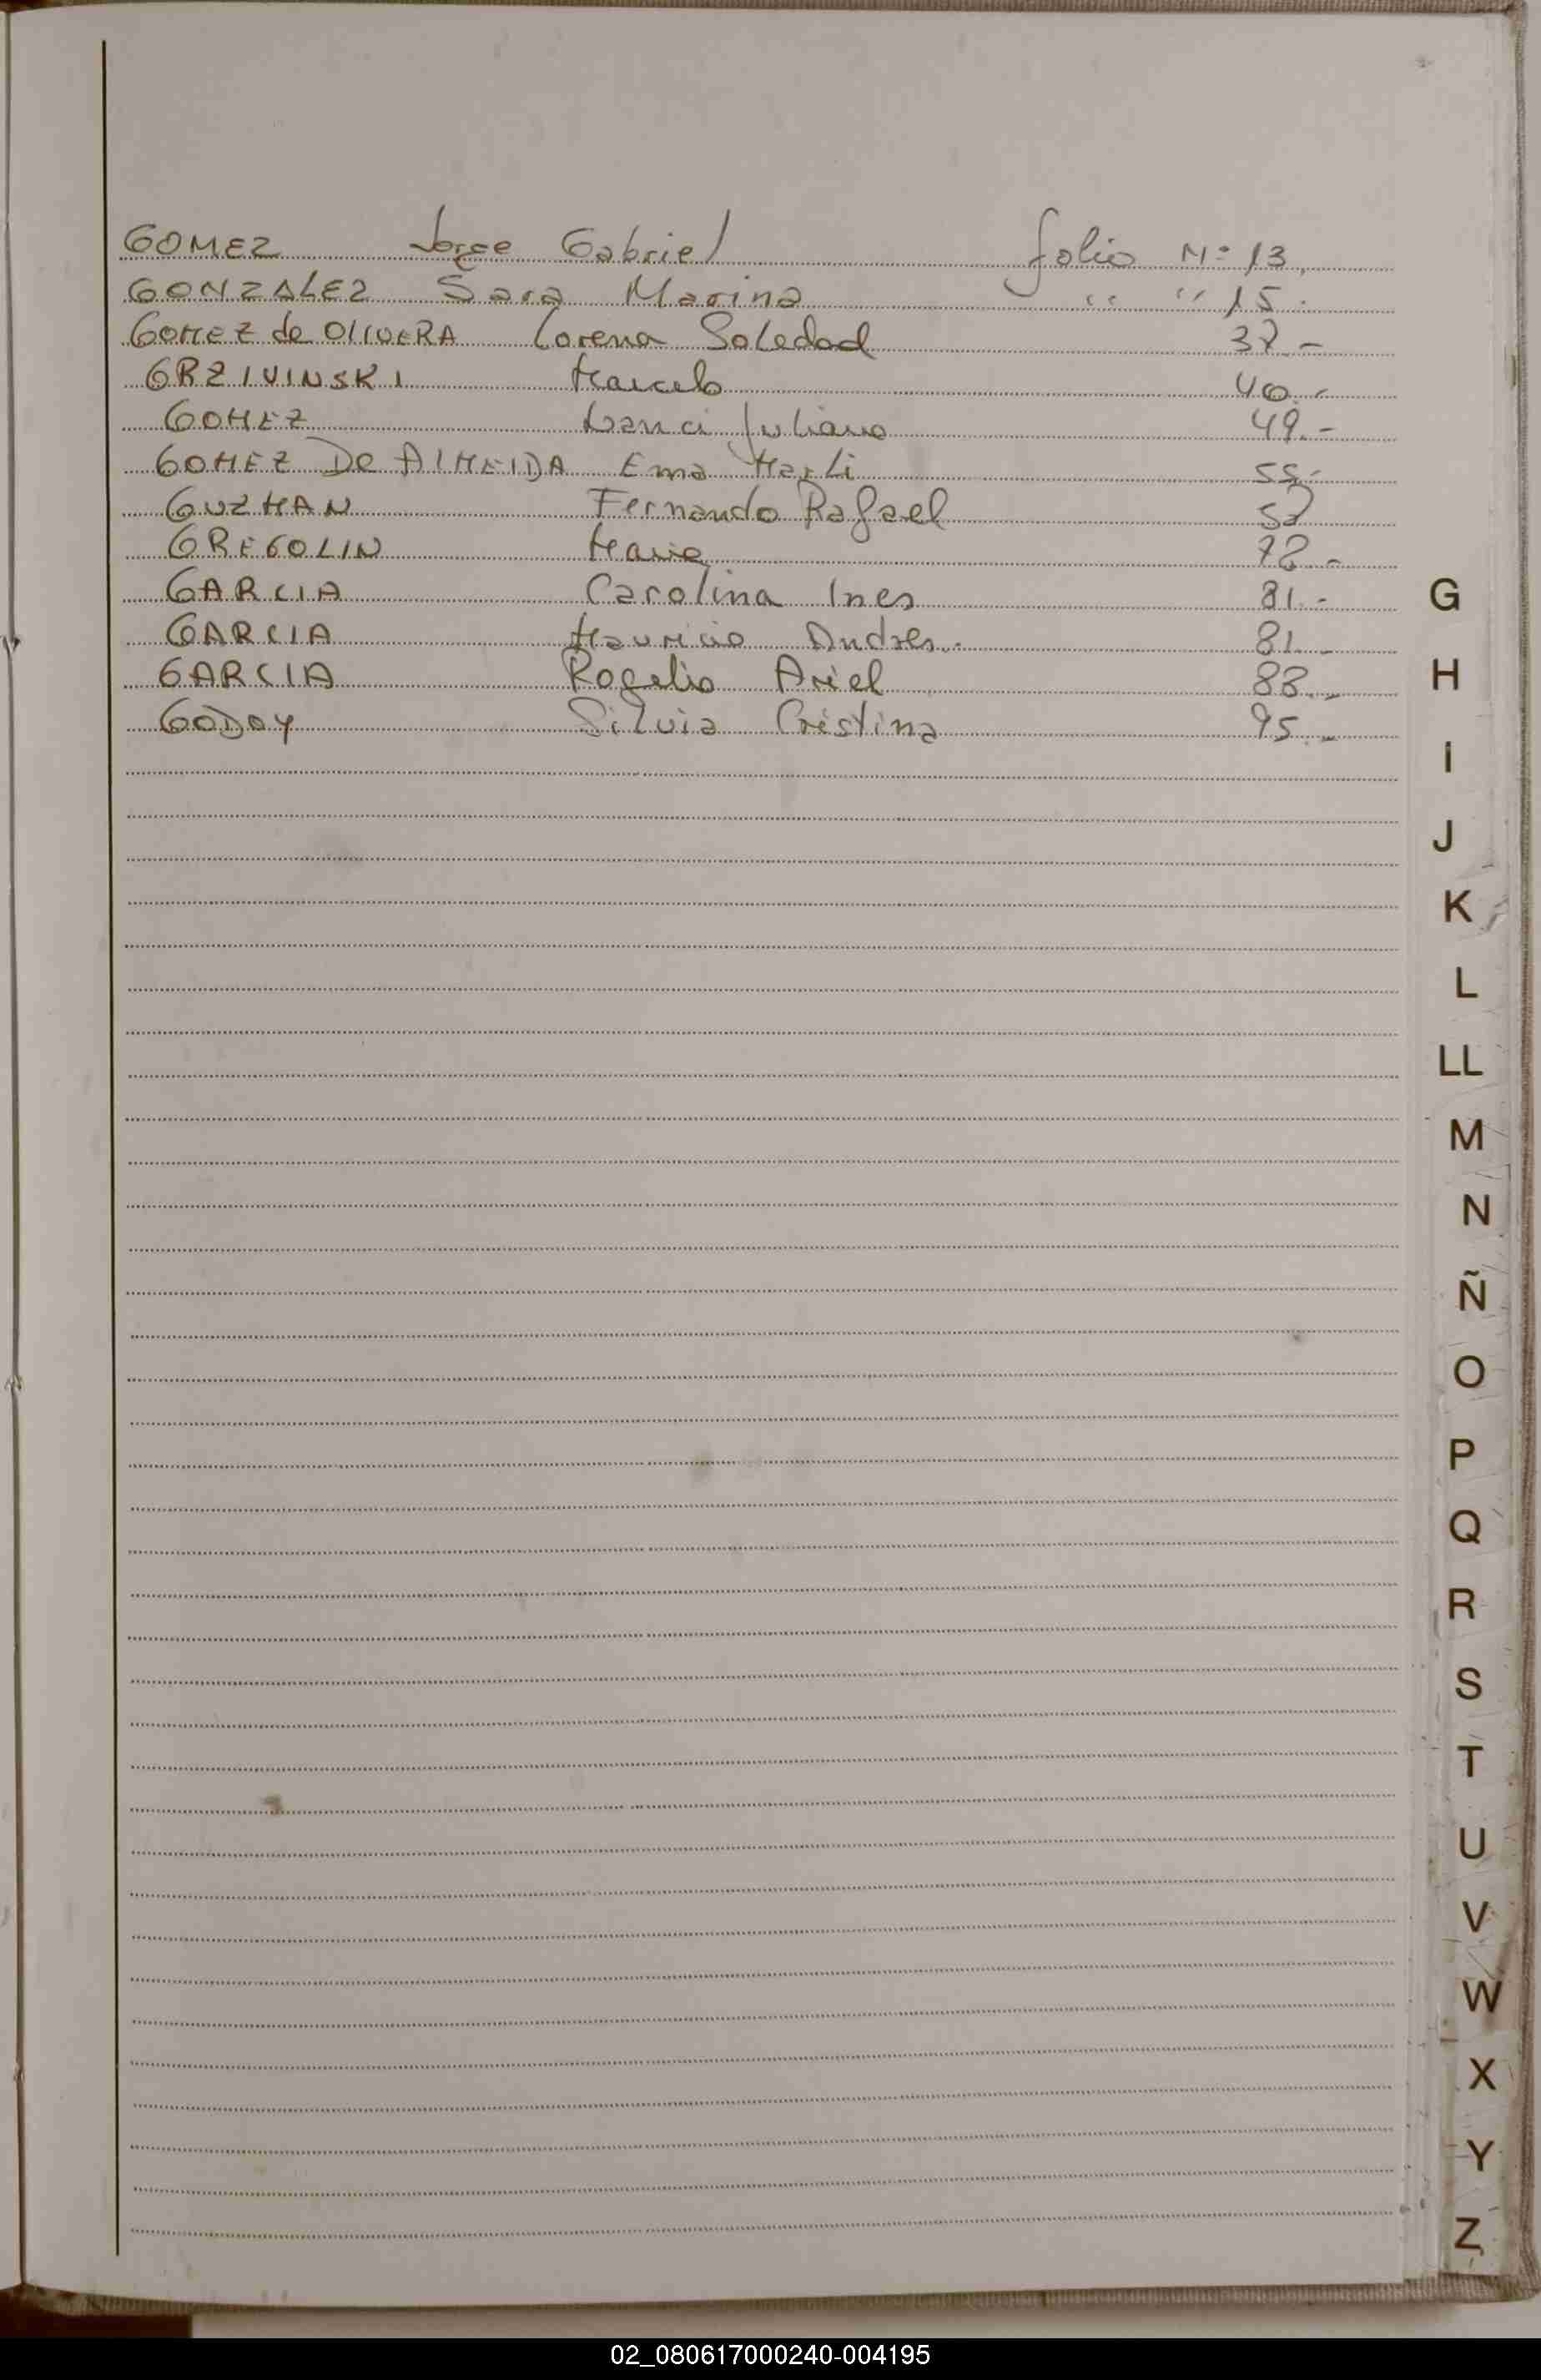 GOMEZ Jorge Gabriel folio Nº 13.
GONZALEZ Sara Marina " " 15.
GOMEZ de OLIVERA Lorena Soledad 37.-
GRZIVINSKI Marcelo 40.-
GOMEZ Juliano 49.-
GOMEZ De ALMEIDA Ema Marli 55.-
GUZMAN Fernando Rafael 57
GREGOLIN Mario 78.-
GARCIA Carolina Ines 81.-
GARCIA Mauricio Andres.- 81.-
GARCIA Rogelio Ariel 88.-
GODOY Silvia Cristina 95.-
G
H
I
J
K
L
LL
M
N
Ñ
O
P
Q
R
S
T
U
V
W
X
Y
Z
02_080617000240-004195